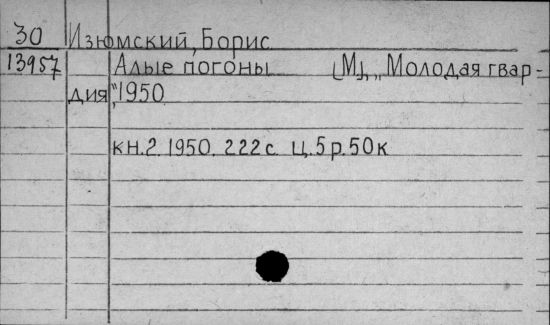 30 Изюмский, Борис
13957 Алые погоны [М], „Молодая гвар-
дия“, 1950.
кн.2. 1950. 222 с. ц. 5 р. 50 к